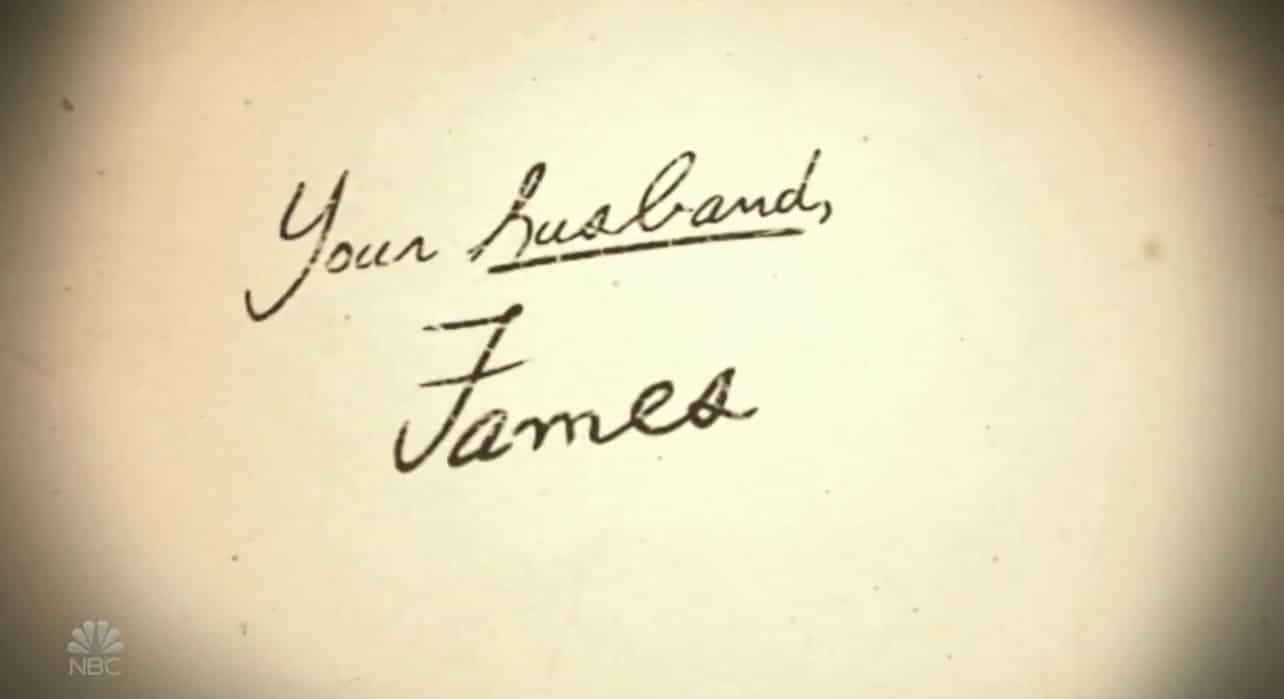 Your husband,
James
NBC